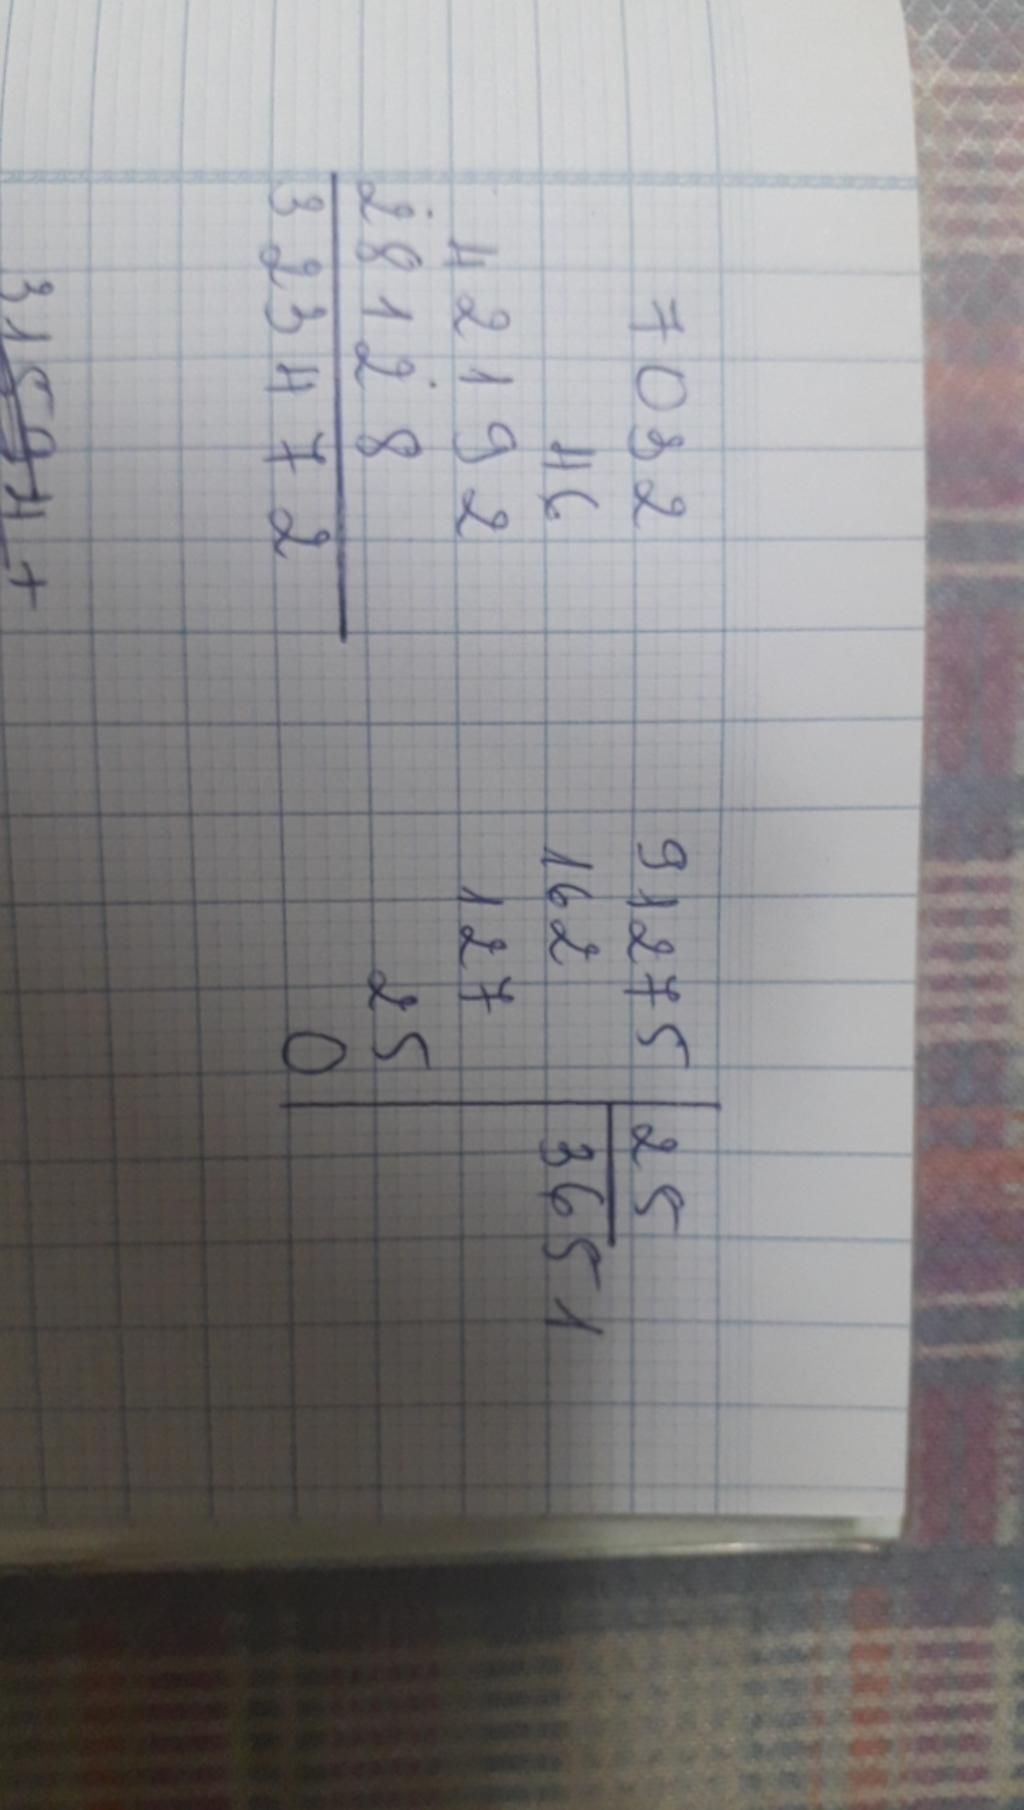 7032
46
42192
28128
323472
91275 25
162 3651
127
25
0